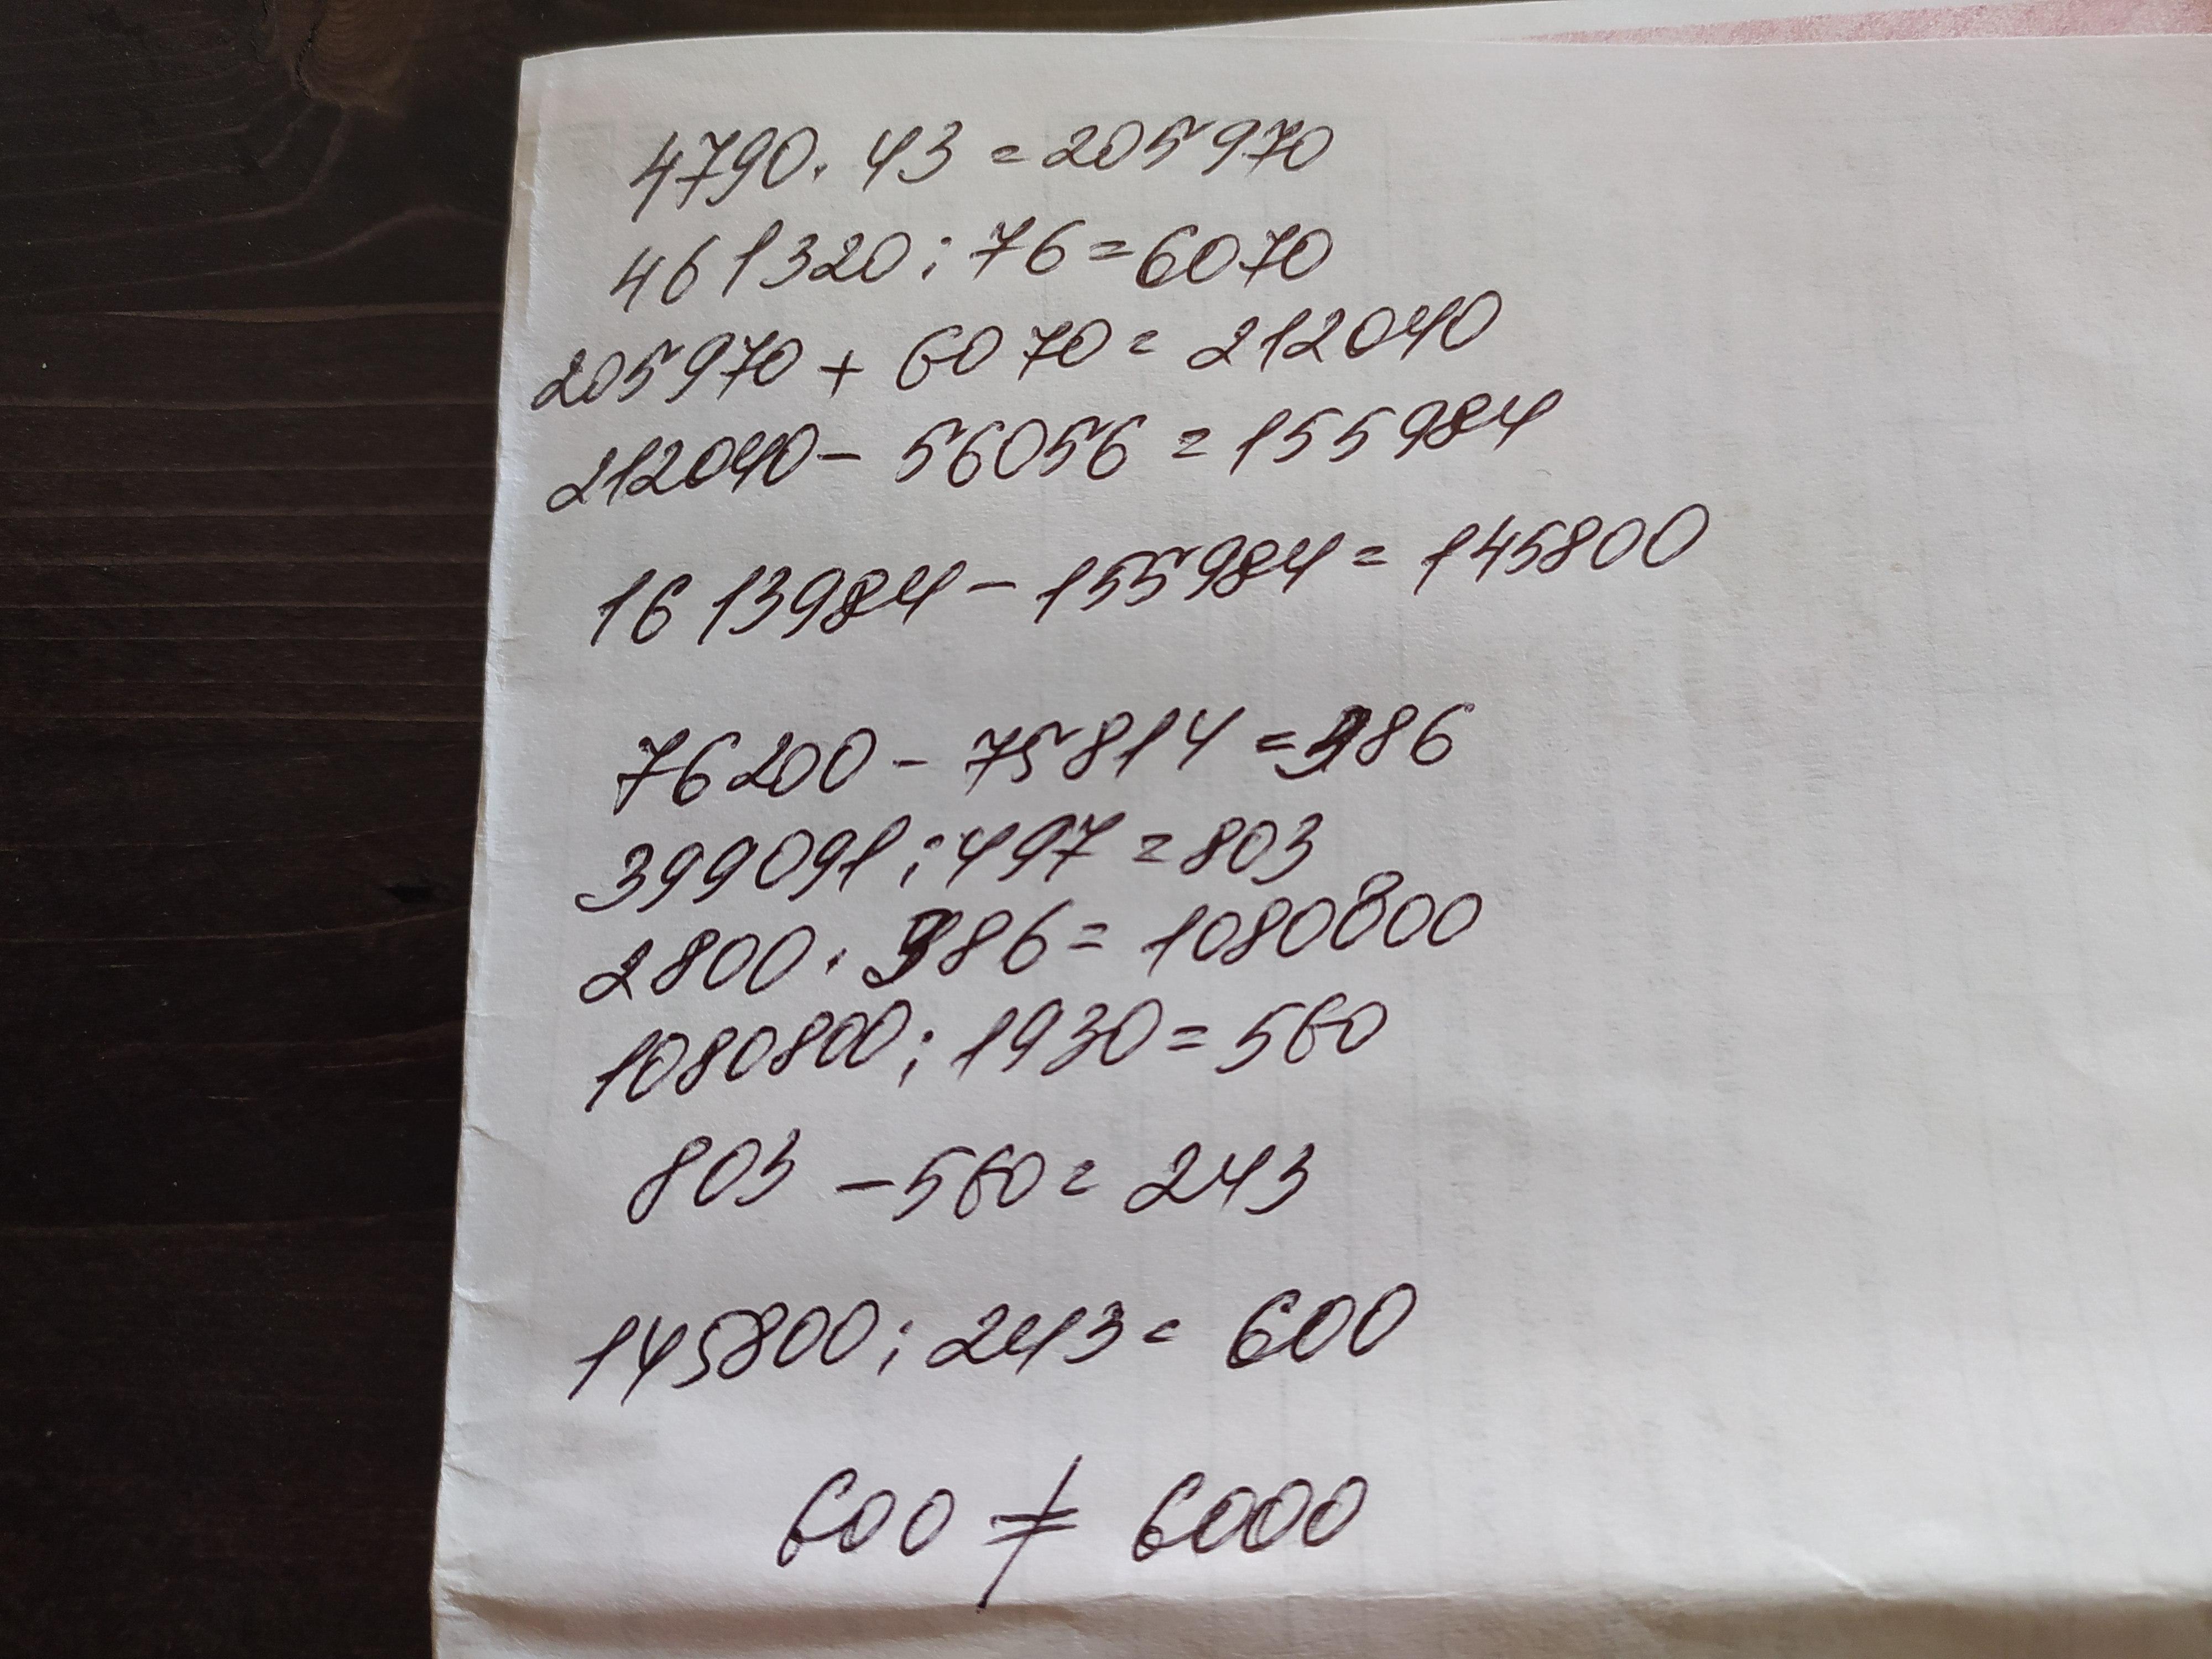 4790 · 43 = 205970
461320 : 76 = 6070
205970 + 6070 = 212040
212040 - 56056 = 155984
1613984 - 155984 = 145800
76200 - 75814 = 386
399091 : 497 = 803
2800 · 386 = 1080800
1080800 : 1930 = 560
803 - 560 = 243
145800 : 243 = 600
600 ≠ 6000